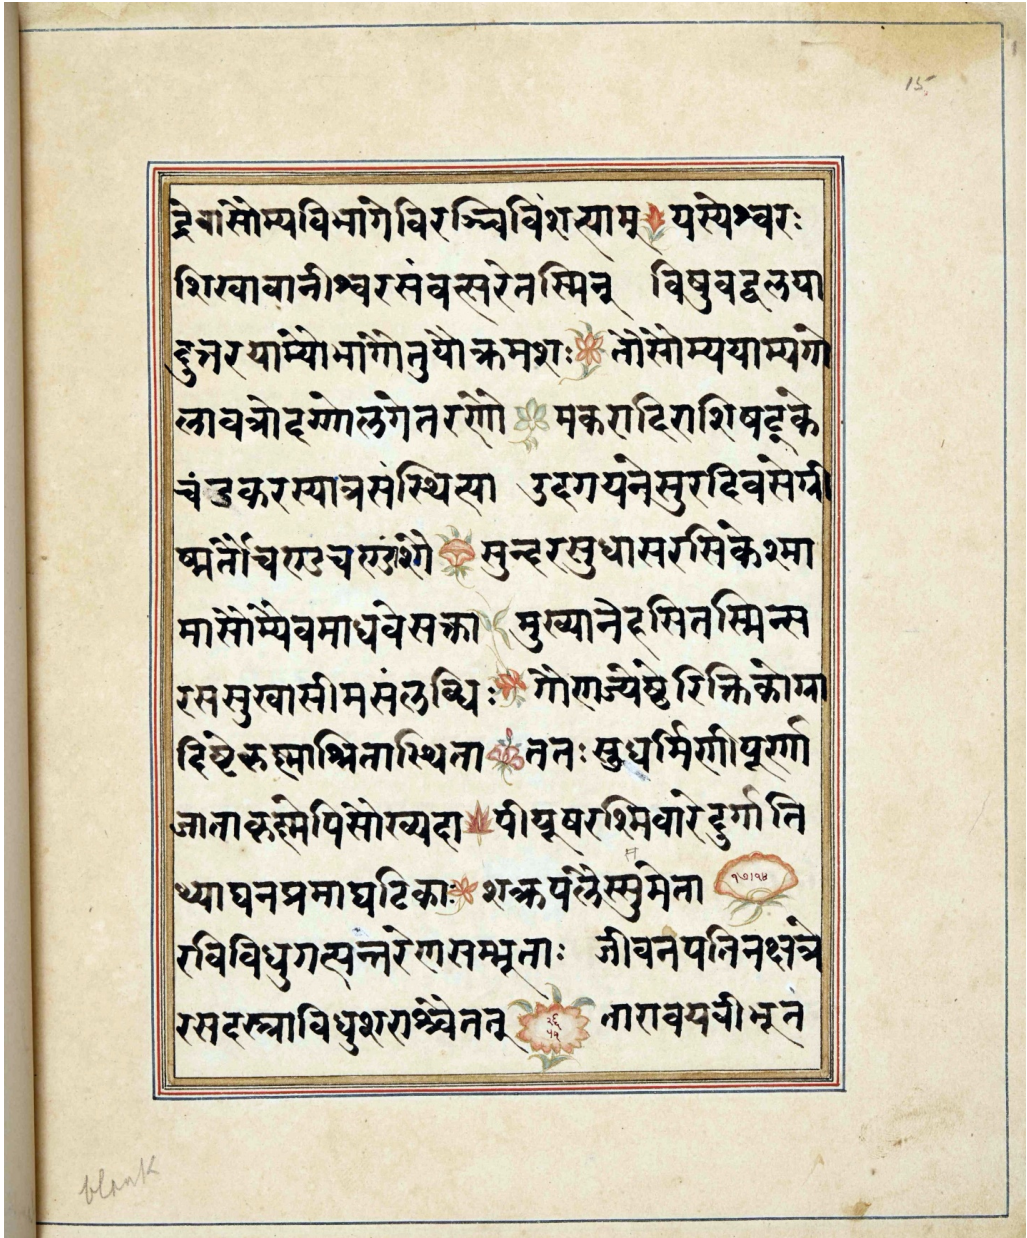 15
द्वेवासौम्यविभागेविरञ्चिविंशत्यामु यस्येश्वरः
शिखावानीश्वरसंवत्सरेतस्मिन् विषुवद्वलया
दुत्तरयाम्यौभागौतुयौक्रमशः तौसौम्ययाम्यगो
लावत्रोदग्गोलगेतरणौ मकरादिराशिषट्के
चंडकरस्यात्रसंस्थित्या उदगयनेसुरदिवसेग्री
ष्मर्तौचण्डचण्डांशौ सुन्दरसुधासरसिकेश्मा
मासौम्यैवमाधवेसक्ता मुख्यानेहसितस्मिन्स
रससुखासीमसंलब्धिः गौणज्येष्ठेरिक्तिकोग्रा
दिष्टेकृष्णाश्रितास्थिता ततः सुधर्मिणीपूर्णा
जाताकृष्णेपिसौख्यदा पीयूषरश्मिवारेदुर्गाति
थ्याघनप्रमाघटिकाः शक्रपलैस्सुमिता १७।१४
रविविधुगत्यन्तरेणसम्भूताः जीवनपतिनक्षत्रे
रसदस्राविधुशराश्चैतत् २६ ५१ तारावयवीभूतं
blank